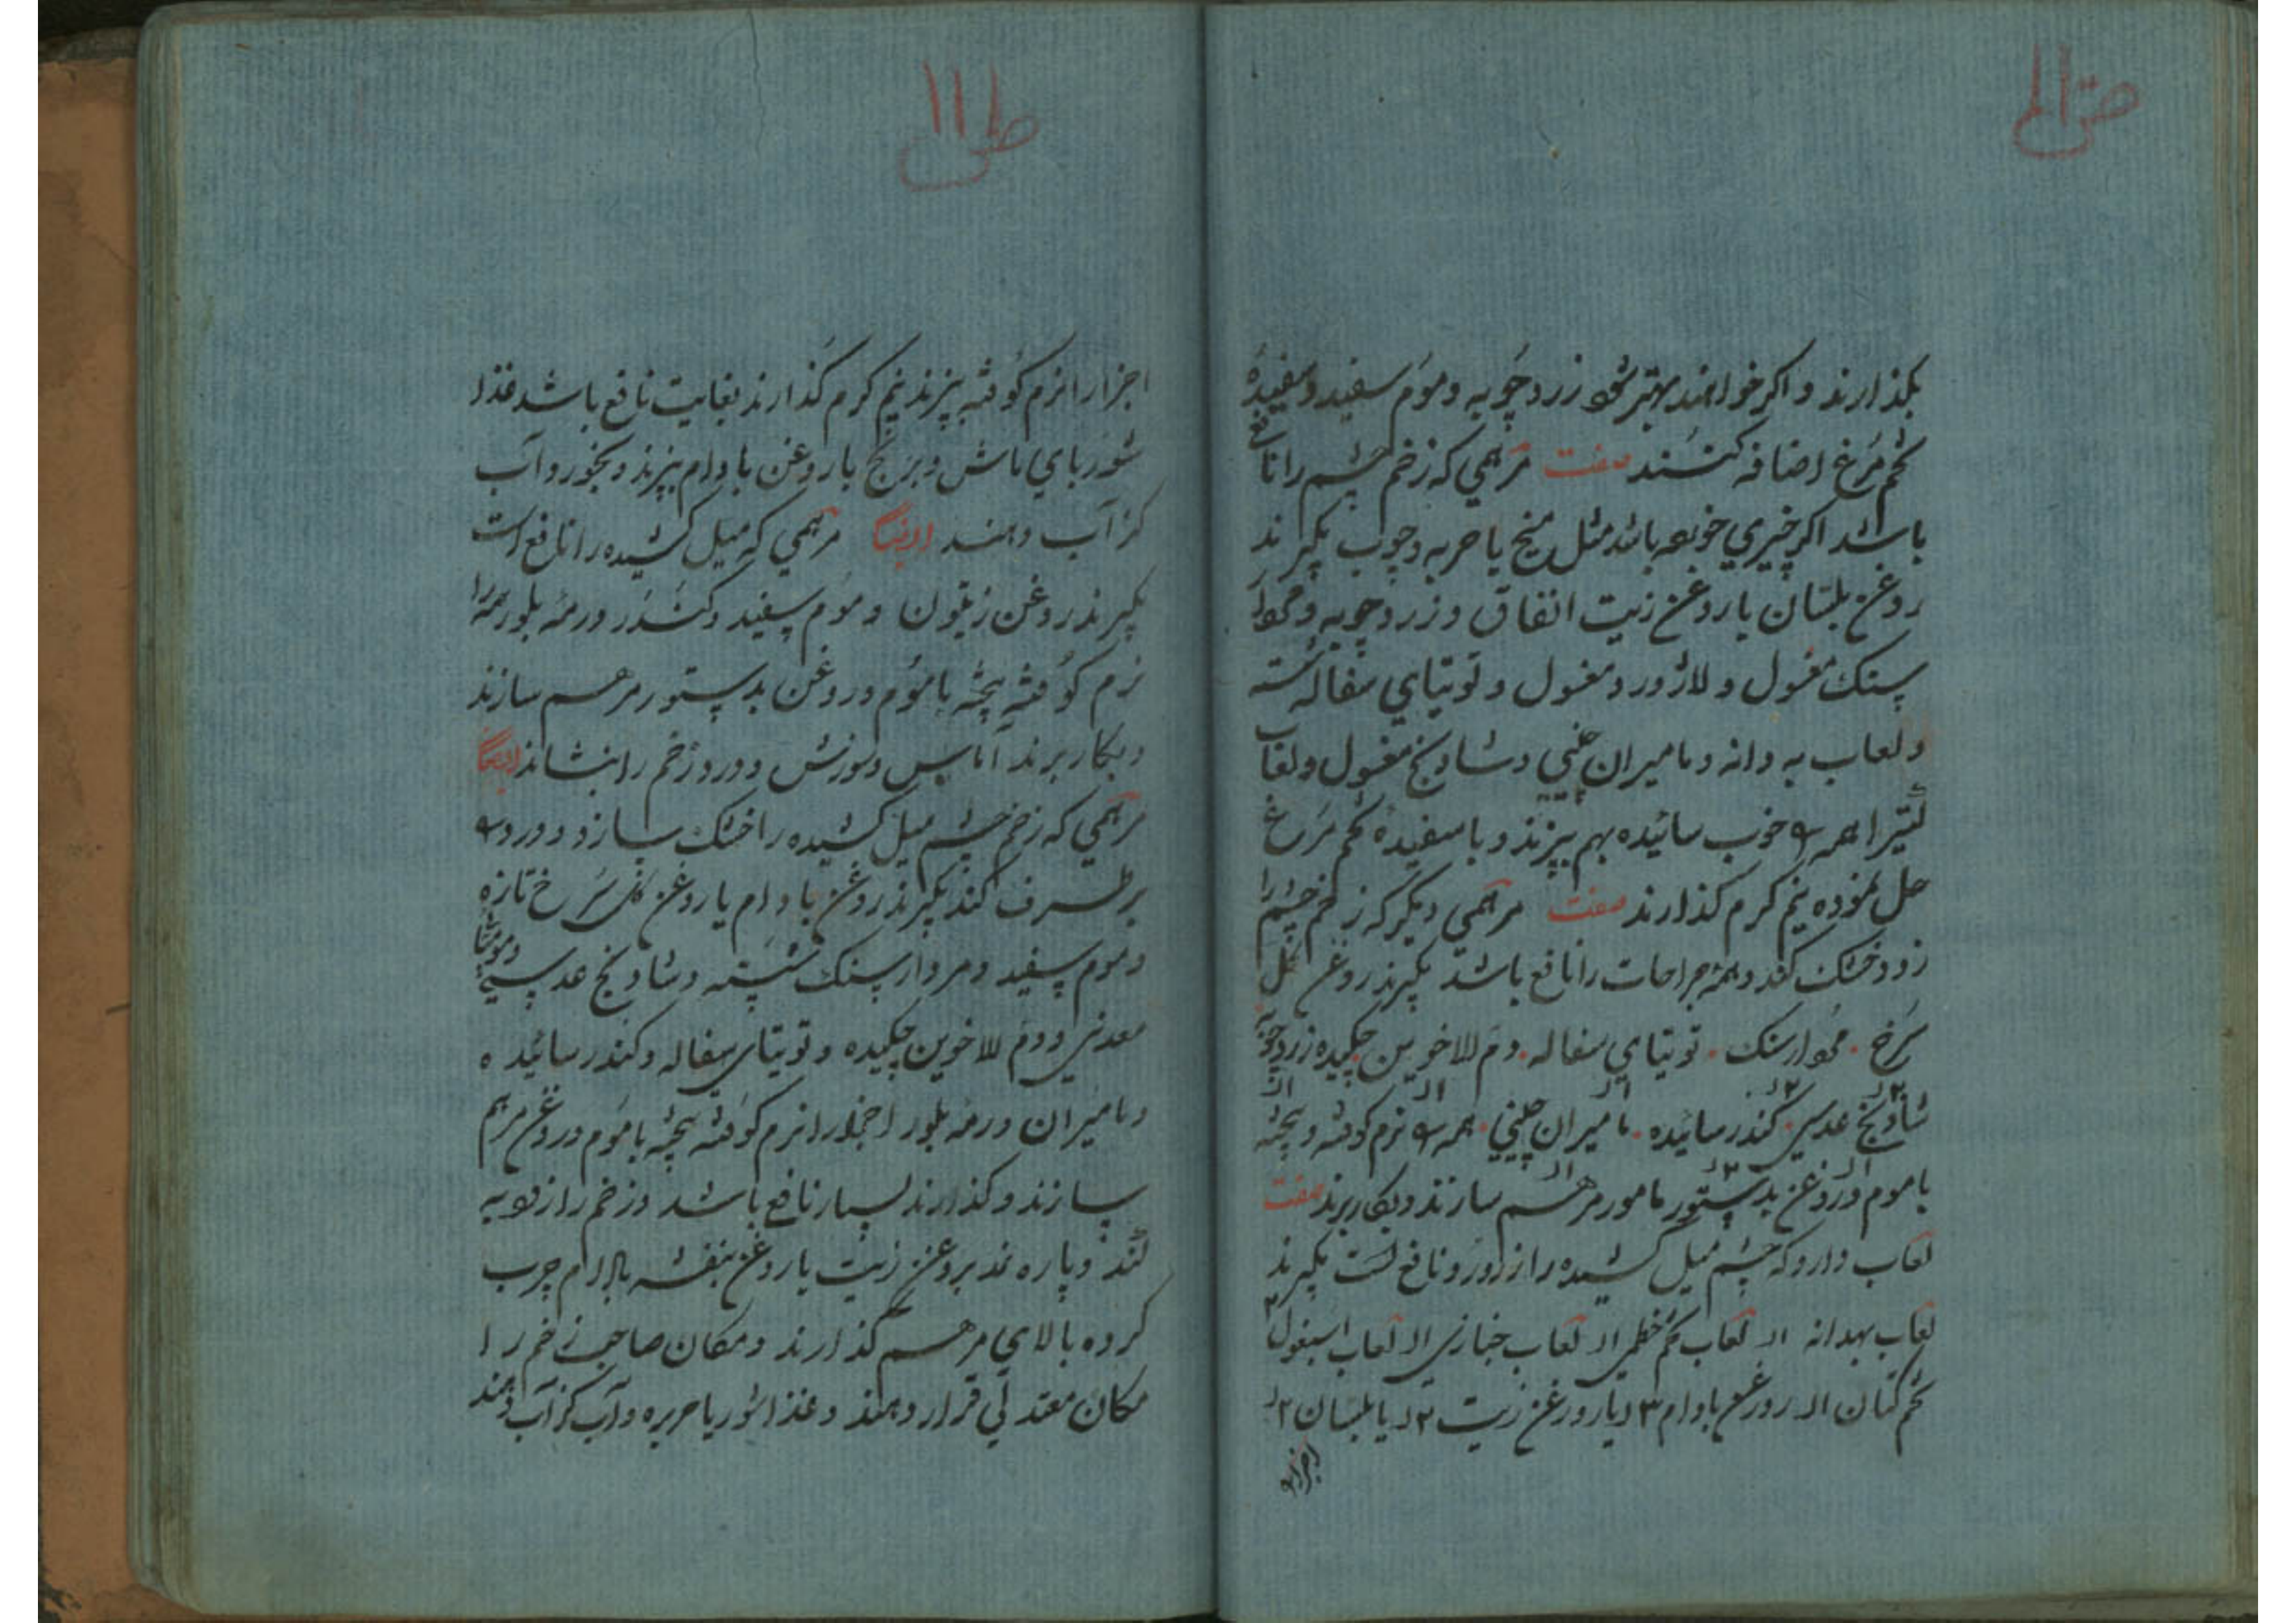 بکذارند و اکر خواهند بهتر شود زرد چوبه و موم سفید و سفیدهٔ
تخم مرغ اضافه کنند صفت مرهمی که زخم چشم را نافع
باشد اکر چیزی خورده باشد مثل میخ یا حربه و چوب بکیرند
روغن بلسان یا روغن زیت انفاق و زرد چوبه و مردار
سنک مغسول و لاژورد مغسول و توتیای سفاله شسته
و لعاب به دانه و مامیران چینی و شادنج مغسول و لعاب
کتیرا همه را خوب سائیده بهم بپزند و با سفیدهٔ تخم مرغ
حل نموده نیم کرم کذارند صفت مرهمی دیکر که زخم چشم را
زود خشک کند و همه جراحات را نافع باشد بکیرند روغن کل
سرخ مردارسنک توتیای سفاله دم الاخوین چکیده زرد چوبه
شادنج عدسی کندر سائیده مامیران چینی همه را نرم کوفته و بیخته
با موم و روغن بدستور مامور مرهم سازند و بکار برند صفت
لعاب دارو که چشم میل کشیده را از درد نافع است بکیرند
لعاب بهدانه لعاب تخم خطمی لعاب خبازی لعاب اسبغول
تخم کتان روغن بادام ۳ یا روغن زیت ۲ یا بلسان ۲
اجزا را
ص۱۱۱
اجزا را نرم کوفته بپزند نیم کرم کذارند بغایت نافع باشد غذا
شوربای ماش و برنج با روغن بادام بپزند و بخورد و آب
کزآب دهند ایضا مرهمی که میل کشیده را نافع است
بکیرند روغن زیتون و موم سفید و کندر و رمه بلور همه را
نرم کوفته بیخته با موم و روغن بدستور مرهم سازند
و بکار برند آماس و سوزش و درد زخم را بنشاند ایضا
مرهمی که زخم چشم میل کشیده را خشک سازد و درد را
بر طرف کند بکیرند روغن بادام یا روغن کل سرخ تازه
و موم سفید و مردار سنک شسته و شادنج عدسی و مومیای
معدنی و دم الاخوین چکیده و توتیای سفاله و کندر سائیده
و مامیران و رمه بلور اجزا را نرم کوفته بیخته با موم و روغن مرهم
سازند و کذارند بسیار نافع باشد و زخم را زود به
کند و پاره نمد بروغن زیت یا روغن بنفشه بادام چرب
کرده بالای مرهم کذارند و مکان صاحب زخم را
مکان معتدلی قرار دهند و غذا شوربا یا حریره و آب کزآب دهند